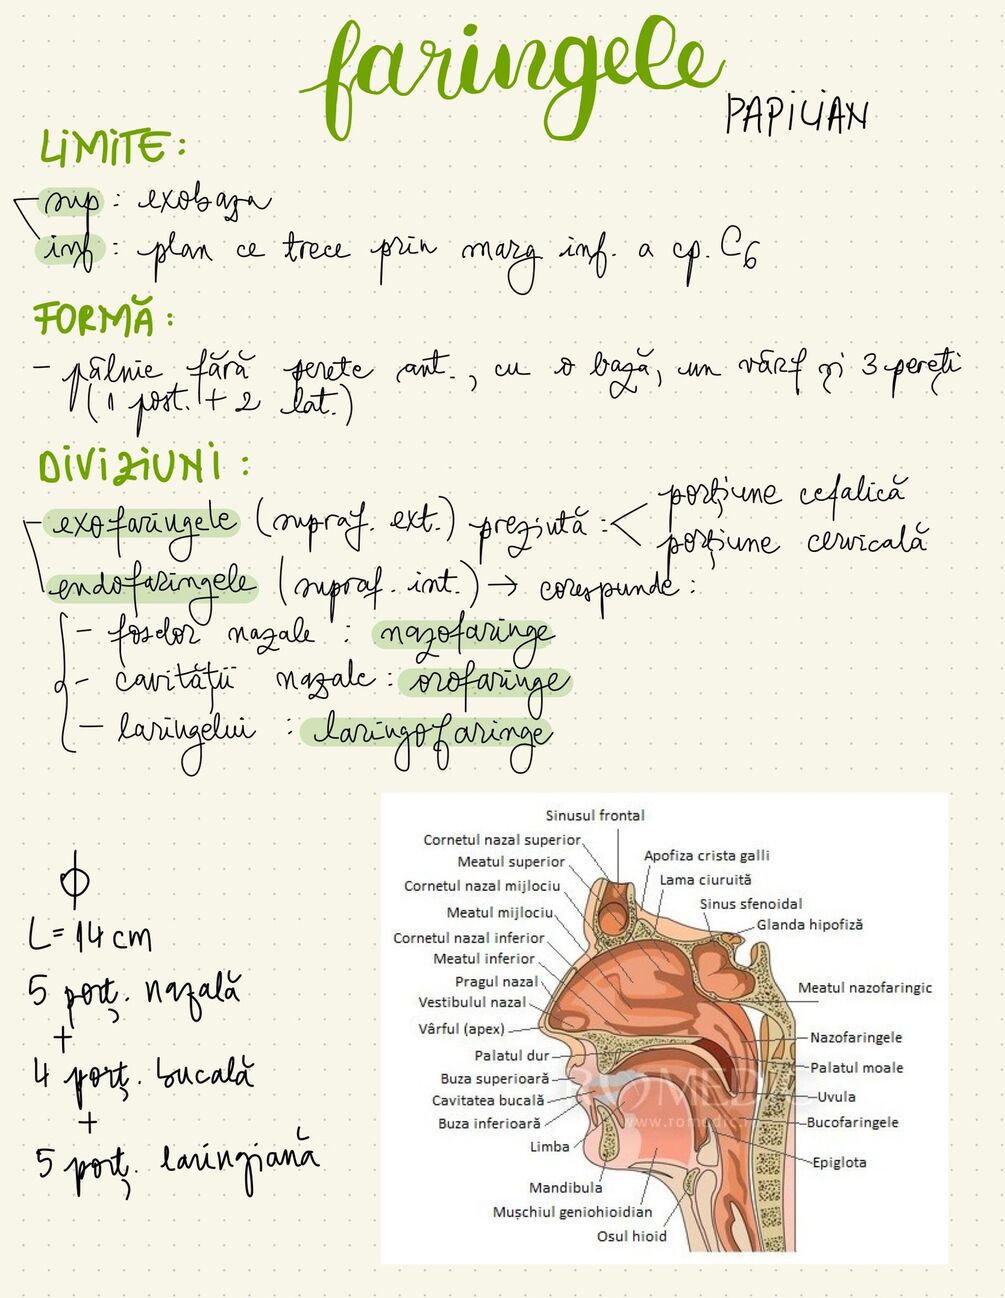 faringele
PAPILIAN
LIMITE:
sup: exobaza
inf: plan ce trece prin marg inf. a cp. C6
FORMĂ:
- pâlnie fără perete ant., cu o bază, un vârf și 3 pereți
(1 post. + 2 lat.)
DIVIZIUNI:
exofaringele (supraf. ext.) prezintă:
porțiune cefalică
porțiune cervicală
endofaringele (supraf. int.) → corespunde:
- foselor nazale: nazofaringe
- cavității nazale: orofaringe
- laringelui: laringofaringe
L = 14 cm
5 porț. nazală
+
4 porț. bucală
+
5 porț. laringiană
Sinusul frontal
Cornetul nazal superior
Meatul superior
Cornetul nazal mijlociu
Meatul mijlociu
Cornetul nazal inferior
Meatul inferior
Pragul nazal
Vestibulul nazal
Vârful (apex)
Palatul dur
Buza superioară
Cavitatea bucală
Buza inferioară
Limba
Mandibula
Mușchiul geniohioidian
Osul hioid
Apofiza crista galli
Lama ciuruită
Sinus sfenoidal
Glanda hipofiză
Meatul nazofaringic
Nazofaringele
Palatul moale
Uvula
Bucofaringele
Epiglota
ROMEDIC
www.romedic.ro